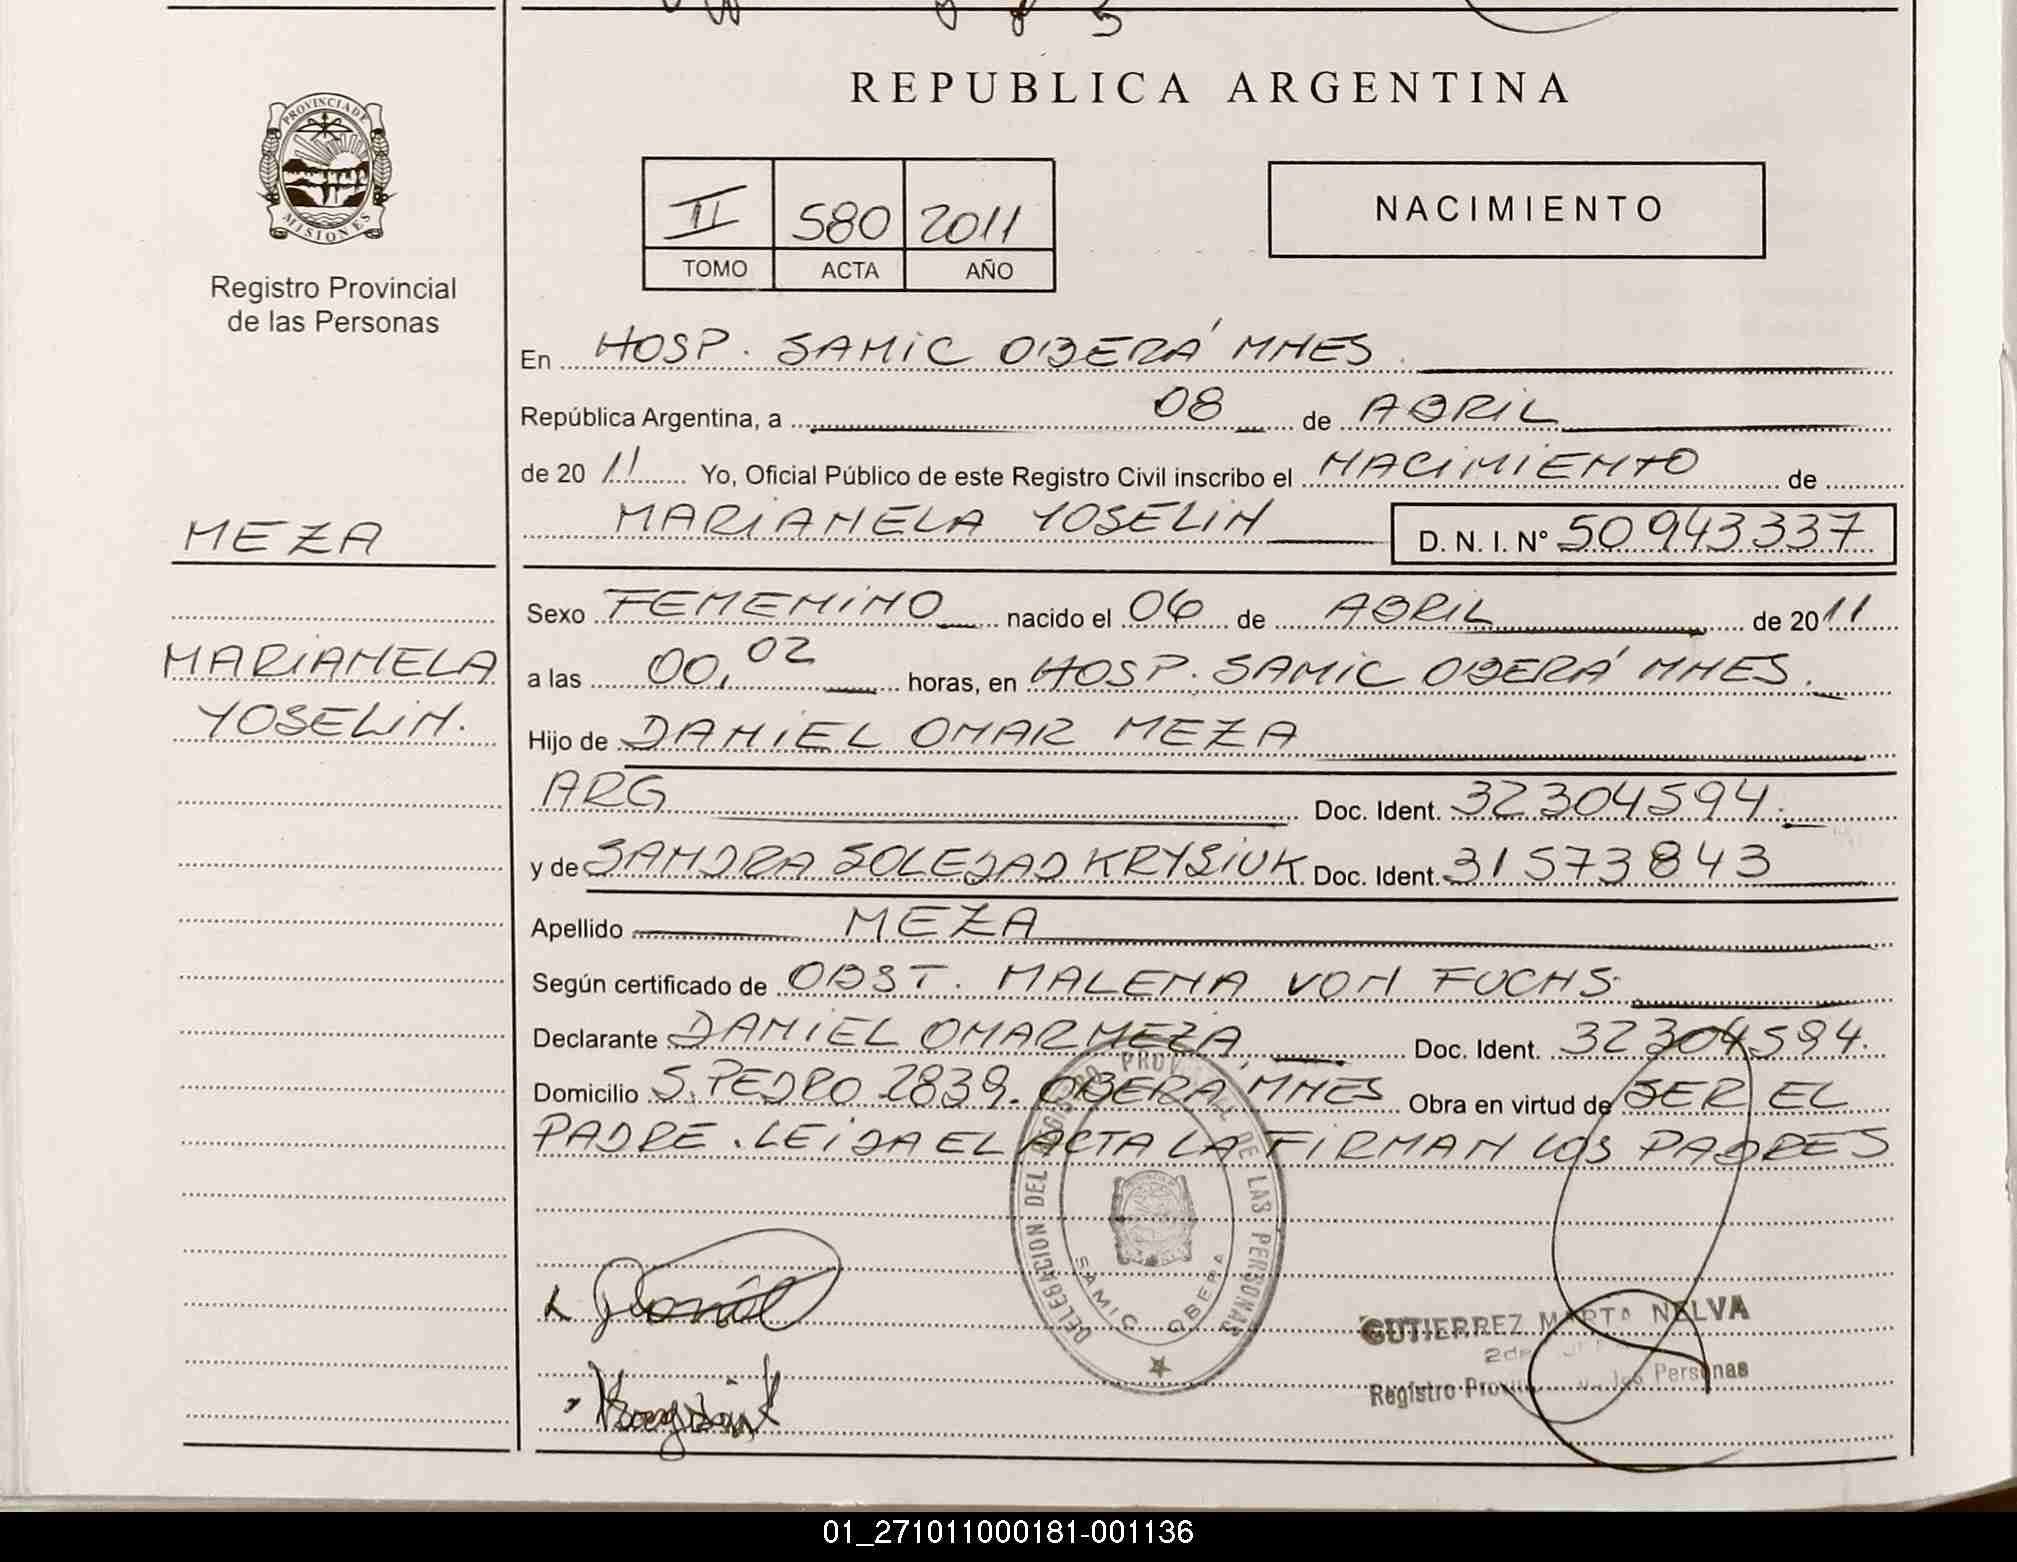 REPUBLICA ARGENTINA
PROVINCIA DE
MISIONES
Registro Provincial
de las Personas
II 580 2011
TOMO ACTA AÑO
NACIMIENTO
En HOSP. SAMIC OBERÁ MNES.
República Argentina, a 08 de ABRIL
de 20 11 Yo, Oficial Público de este Registro Civil inscribo el NACIMIENTO de
MARIANELA YOSELIN D. N. I. N° 50943337
MEZA
MARIANELA
YOSELIN.
Sexo FEMENINO nacido el 06 de ABRIL de 20 11
a las 00,02 horas, en HOSP. SAMIC OBERÁ MNES.
Hijo de DANIEL OMAR MEZA
ARG Doc. Ident. 32304594.
y de SANDRA SOLEDAD KRYSIUK Doc. Ident. 31573843
Apellido MEZA
Según certificado de OBST. MALENA VON FUCHS.
Declarante DANIEL OMAR MEZA Doc. Ident. 32304594.
Domicilio S. PEDRO 2839. OBERÁ MNES Obra en virtud de SER EL
PADRE. LEIDA EL ACTA LA FIRMAN LOS PADRES
DELEGACION DEL REGISTRO PROVINCIAL DE LAS PERSONAS
SAMIC OBERA
GUTIERREZ MARTA NELVA
Registro las Personas
01_271011000181-001136